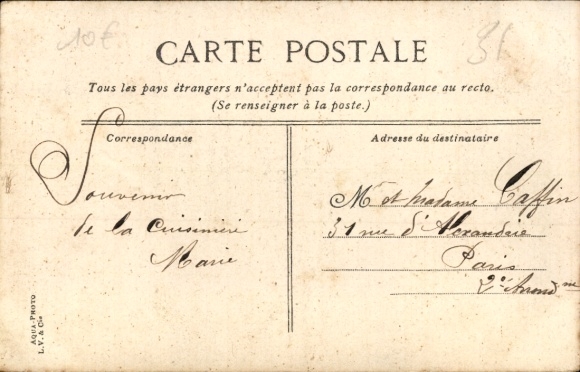 10€
31
CARTE POSTALE
Tous les pays étrangers n'acceptent pas la correspondance au recto.
(Se renseigner à la poste.)
Correspondance
Souvenir
de la Cuisinière
Marie
Adresse du destinataire
Mr et madame Caffin
31 rue d'Alexandrie
Paris
2e Arrondme
AQUA-PHOTO
L. V. & Cie